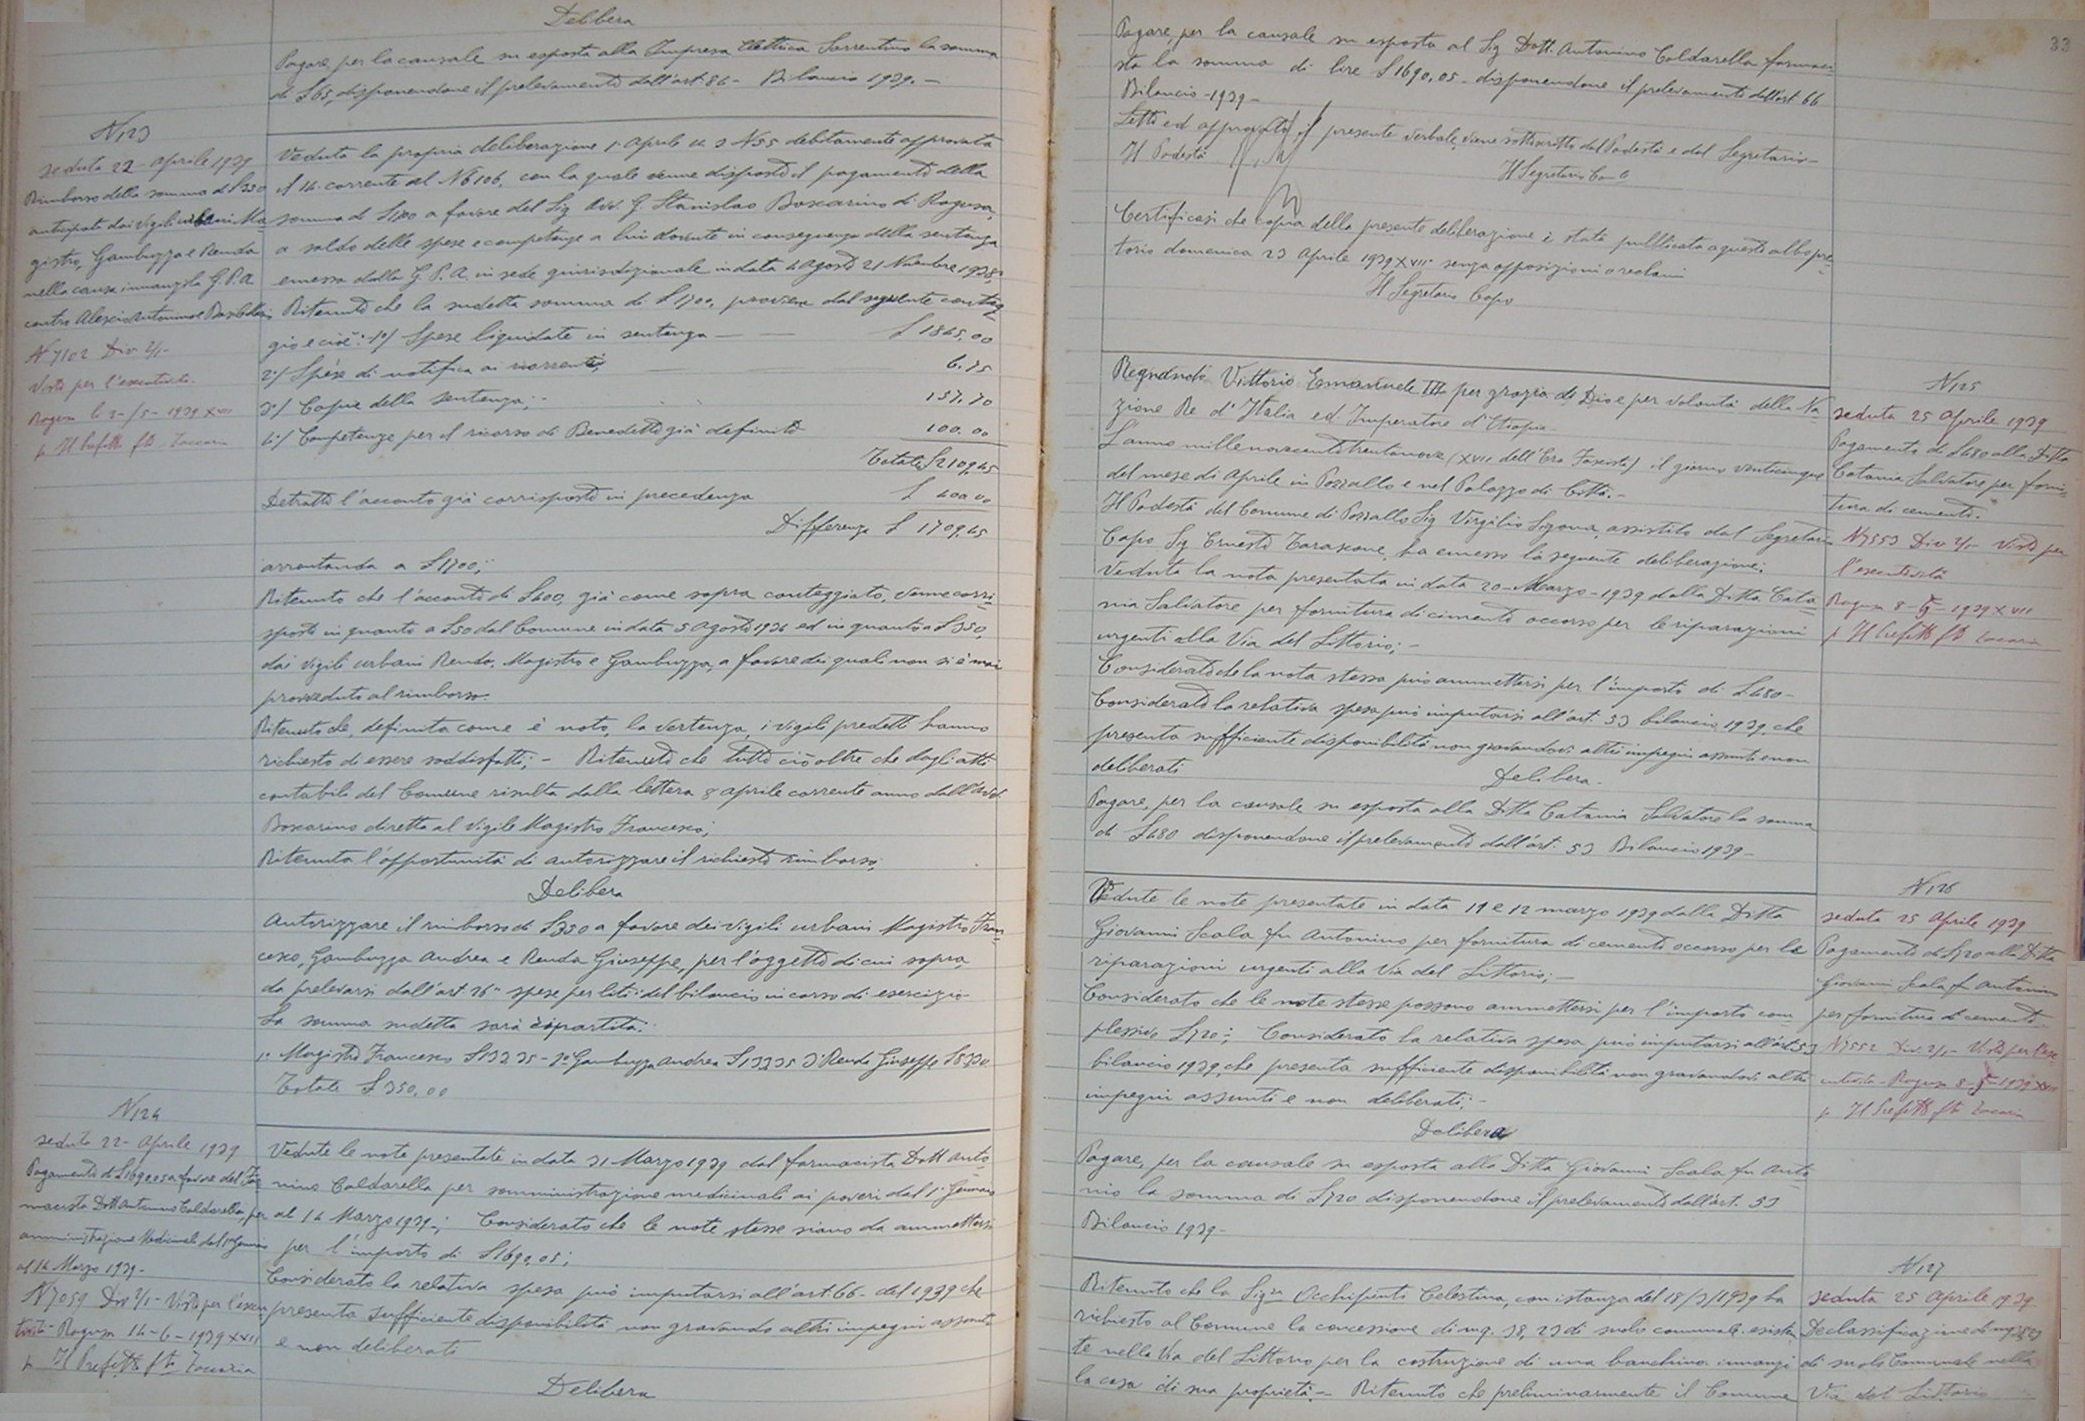 Delibera
Pagare, per la causale su esposta alla Impresa Elettrica Sorrentino la somma
di £65, disponendone il prelevamento dall'art. 86 - Bilancio 1939. -
N 123
seduta 22 - Aprile 1939
Rimborso della somma di £350
anticipata dai Vigili urbani Ma
gistro, Gambuzza e Renda
nella causa innanzi la G.P.A.
contro Alescio Antonino e
N 7102 Div 2/1 -
Visto per l'esecutività.
Ragusa li 3 - /5 - 1939 XVII
p. Il Prefetto fto Zaccaria
Veduta la propria deliberazione 1. Aprile u. s N 55 debitamente approvata
il 14 corrente al N 6106, con la quale venne disposto il pagamento della
somma di £1700 a favore del Sig. Avv. G. Stanislao Boscarino di Ragusa,
a saldo delle spese e competenze a lui dovute in conseguenza della sentenza
emessa dalla G. P. A. in sede giurisdizionale in data 4 Agosto 21 Novembre 1938;
Ritenuto che la sudetta somma di £ 1700, proviene dal seguente conteg
gio e cioè: 1°/ Spese liquidate in sentenza — £ 1845,00
2°/ Spese di notifica ai ricorrenti, 6.75
3°/ Copia della sentenza; - 157.70
4°/ Competenze per il ricorso di Benedetto già definito 100.00
Totale £ 2109,45
Detratto l'acconto già corrisposto in precedenza £ 400.00
Differenza £ 1709,45
arrotondata a £1700;
Ritenuto che l'acconto di £400, già come sopra conteggiato, venne corri
sposto in quanto a £50 dal Comune in data 5 Agosto 1936 ed in quanto a £350,
dai vigili urbani Renda, Magistro e Gambuzza, a favore dei quali non si è mai
provveduto al rimborso.
Ritenuto che, definita come è noto, la vertenza, i vigili predetti hanno
richiesto di essere soddisfatti; - Ritenuto che tutto ciò oltre che dagli atti
contabili del Comune risulta dalla lettera 8 aprile corrente anno dall'Avv.
Boscarino diretta al Vigile Magistro Francesco;
Ritenuta l'opportunità di autorizzare il richiesto rimborso;
Delibera
Autorizzare il rimborso di £350 a favore dei Vigili urbani Magistro Fran
cesco, Gambuzza Andrea e Renda Giuseppe, per l'oggetto di cui sopra,
da prelevarsi dall'art. 36 "spese per liti" del bilancio in corso di esercizio
La somma sudetta sarà ripartita:
1° Magistro Francesco £ 133.35 - 2° Gambuzza Andrea £ 133.35 3° Renda Giuseppe £ 83.30
Totale £ 350,00
N 124
seduta 22 - Aprile 1939
Pagamento di £1690.05 a favore del Far
macista Dott. Antonino Caldarella, per
amministrazione Medicinali dal 1° Gennaio
al 14 Marzo 1939 -
N 7059 Div 2/1 - Visto per l'esecu
tività - Ragusa 14 - 6 - 1939 XVII
p Il Prefetto fto Zaccaria
Vedute le note presentate in data 31 Marzo 1939 dal farmacista Dott. Anto
nino Caldarella per somministrazione medicinali ai poveri dal 1° Gennaio
al 14 Marzo 1939 -; Considerato che le note stesse siano da ammettersi
per l'importo di £1690,05;
Considerato la relativa spesa può imputarsi all'art. 66 - del 1939 che
presenta sufficiente disponibilità non gravando altri impegni assunti
e non deliberati
Delibera
33
Pagare, per la causale su esposta al Sig Dott. Antonino Caldarella farmaci
sta la somma di lire £1690,05 - disponendone il prelevamento dall'art. 66
Bilancio - 1939 -
Letto ed approvato il presente verbale, viene sottoscritto dal Podestà e dal Segretario -
Il Podestà
Il Segretario Capo
Certificasi che copia della presente deliberazione è stata pubblicata a questo albo pre
torio domenica 23 Aprile 1939 XVII senza opposizioni o reclami
Il Segretario Capo
Regnando Vittorio Emanuele III per grazia di Dio e per volontà della Na
zione Re d'Italia ed Imperatore d'Etiopia -
L'anno millenovecentotrentanove (XVII dell'Era Fascista) il giorno venticinque
del mese di Aprile in Pozzallo e nel Palazzo di Città. -
Il Podestà del Comune di Pozzallo Sig Virgilio Sigona, assistito dal Segretario
Capo Sig. Ernesto Tarascone, ha emesso la seguente deliberazione;
Veduta la nota presentata in data 20 - Marzo - 1939 dalla Ditta Cata
nia Salvatore per fornitura di cemento occorso per le riparazioni
urgenti alla Via del Littorio; -
Considerato che la nota stessa può ammettersi per l'importo di £480 -
Considerato la relativa spesa può imputarsi all'art. 53 bilancio 1939 che
presenta sufficiente disponibilità non gravandovi altri impegni assunti e non
deliberati
Delibera -
Pagare, per la causale su esposta alla Ditta Catania Salvatore la somma
di £480 disponendone il prelevamento dall'art. 53 Bilancio 1939 -
N 125
seduta 25 Aprile 1939
Pagamento di £480 alla Ditta
Catania Salvatore per forni
tura di cemento.
N 7553 Div 2/1 - Visto per
l'esecutività
Ragusa 8 - 5 - 1939 XVII
p Il Prefetto fto Zaccaria
Vedute le note presentate in data 11 e 12 marzo 1939 dalla Ditta
Giovanni Scala fu Antonino per fornitura di cemento occorso per le
riparazioni urgenti alla Via del Littorio; -
Considerato che le note stesse possono ammettersi per l'importo com
plessivo £720; Considerato la relativa spesa può imputarsi all'art. 53
bilancio 1939 che presenta sufficiente disponibilità non gravandovi altri
impegni assunti e non deliberati; -
Delibera
Pagare, per la causale su esposta alla Ditta Giovanni Scala fu Anto
nio la somma di £720 disponendone il prelevamento dall'art. 53
Bilancio 1939 -
N 126
seduta 25 Aprile 1939
Pagamento di £720 alla Ditta
Giovanni Scala fu Antonino
per fornitura di cemento
N 7552 Div. 2/1 - Visto per l'ese
cutività - Ragusa 8 - 5 - 1939 XVII
p Il Prefetto fto Zaccaria
Ritenuto che la Sig.ra Occhipinti Celestina, con istanza del 18/3/1939 ha
richiesto al Comune la concessione di mq. 38,23 di suolo comunale esisten
te nella Via del Littorio per la costruzione di una banchina innanzi
la casa di sua proprietà - Ritenuto che preliminarmente il Comune
N 127
seduta 25 Aprile 1939
Declassificazione di mq 38,23
di suolo Comunale nella
Via del Littorio